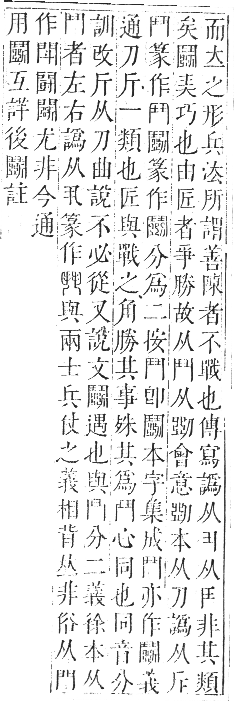 而大之形兵法所謂善陳者不戰也傳寫譌从彐从王非其類
矣鬭美巧也由匠者爭勝故从鬥从斲會意斲本从刀譌从斤
鬥篆作鬥鬭篆作鬭分爲二按鬥卽鬭本字集成鬥亦作鬭義
通刀斤一類也匠與戰之角勝其事殊其爲鬥心同也同音分
訓改斤从刀曲說不必從又說文鬭遇也與鬥分二義徐本从
鬥者左右譌从丮篆作與兩士兵仗之義相背丛非俗从門
作閗鬪鬬尤非今通
用鬭互詳後鬭註